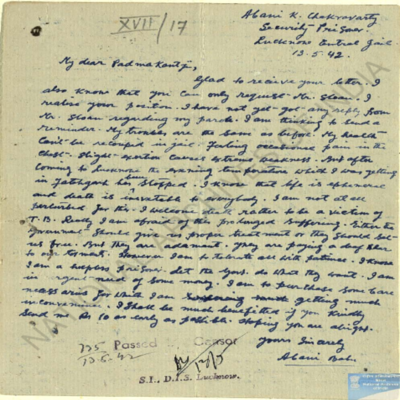 XVII/17
Abani K. Chakravarty
Security Prisoner
Lucknow Central Jail
13-5-42.
My dear Padmakantji,
Glad to recieve your letter. I
also know that you can only request Mr. Sloan. I
realise your position. I have not yet got any reply from
Mr. Sloan regarding my parole. I am thinking to send a
reminder. My troubles are the same as before. My health
can't be recouped in jail. Feeling occasional pain in the
chest. Slight exertion causes extreme weakness. But after
coming to Lucknow the evening temperature which I was getting
in Fatehgarh has stopped. I know that life is ephemeral
and death is inevitable to everybody. I am not at all
perturbed for this. I welcome death rather to be a victim of
T.B. Really I am afraid of the prolonged suffering. Either the
Should give us proper treatment or they should set
us free. But they are adamant. They are paying a deaf ear
to our However I am to tolerate all with patience. I know
I am a helpless prisoner. Let the govt. do what they want. I am
in need of some money. I am to purchase some bare
necessaries for which I am getting much
inconvenience. I shall be much benefitted if you kindly
send me Rs 10 as early as possible. Hoping you are alright.
Yours Sincerely
Abani Babu
Passed by Censor
13.5.42
S.I., D.I.S. Lucknow.
NATIONAL ARCHIVES OF INDIA